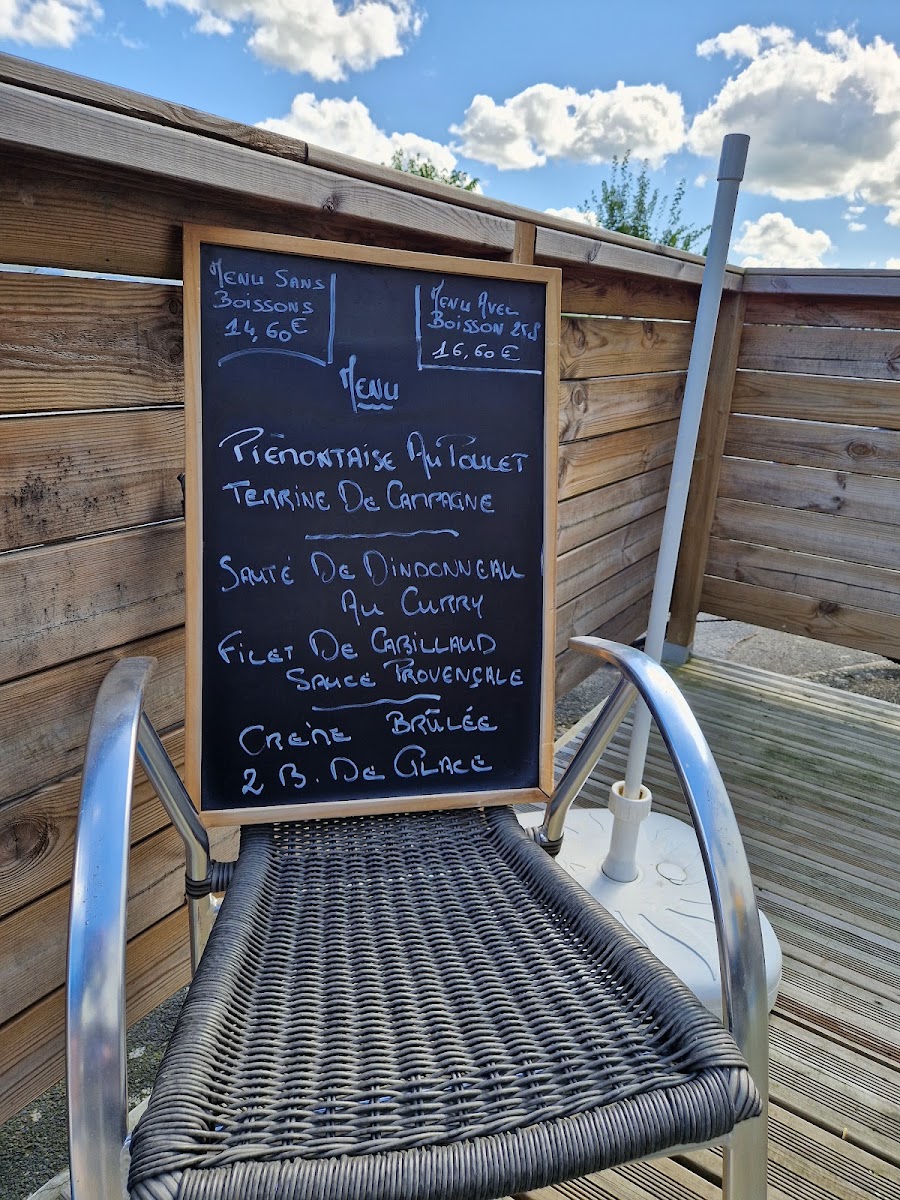 Menu Sans
Boissons
14,60€
Menu Avec
Boisson 25cl
16,60€
Menu
Piémontaise Au Poulet
Terrine De Campagne
Sauté De Dindonneau
Au Curry
Filet De Cabillaud
Sauce Provençale
Crème Brûlée
2 B. De Glace